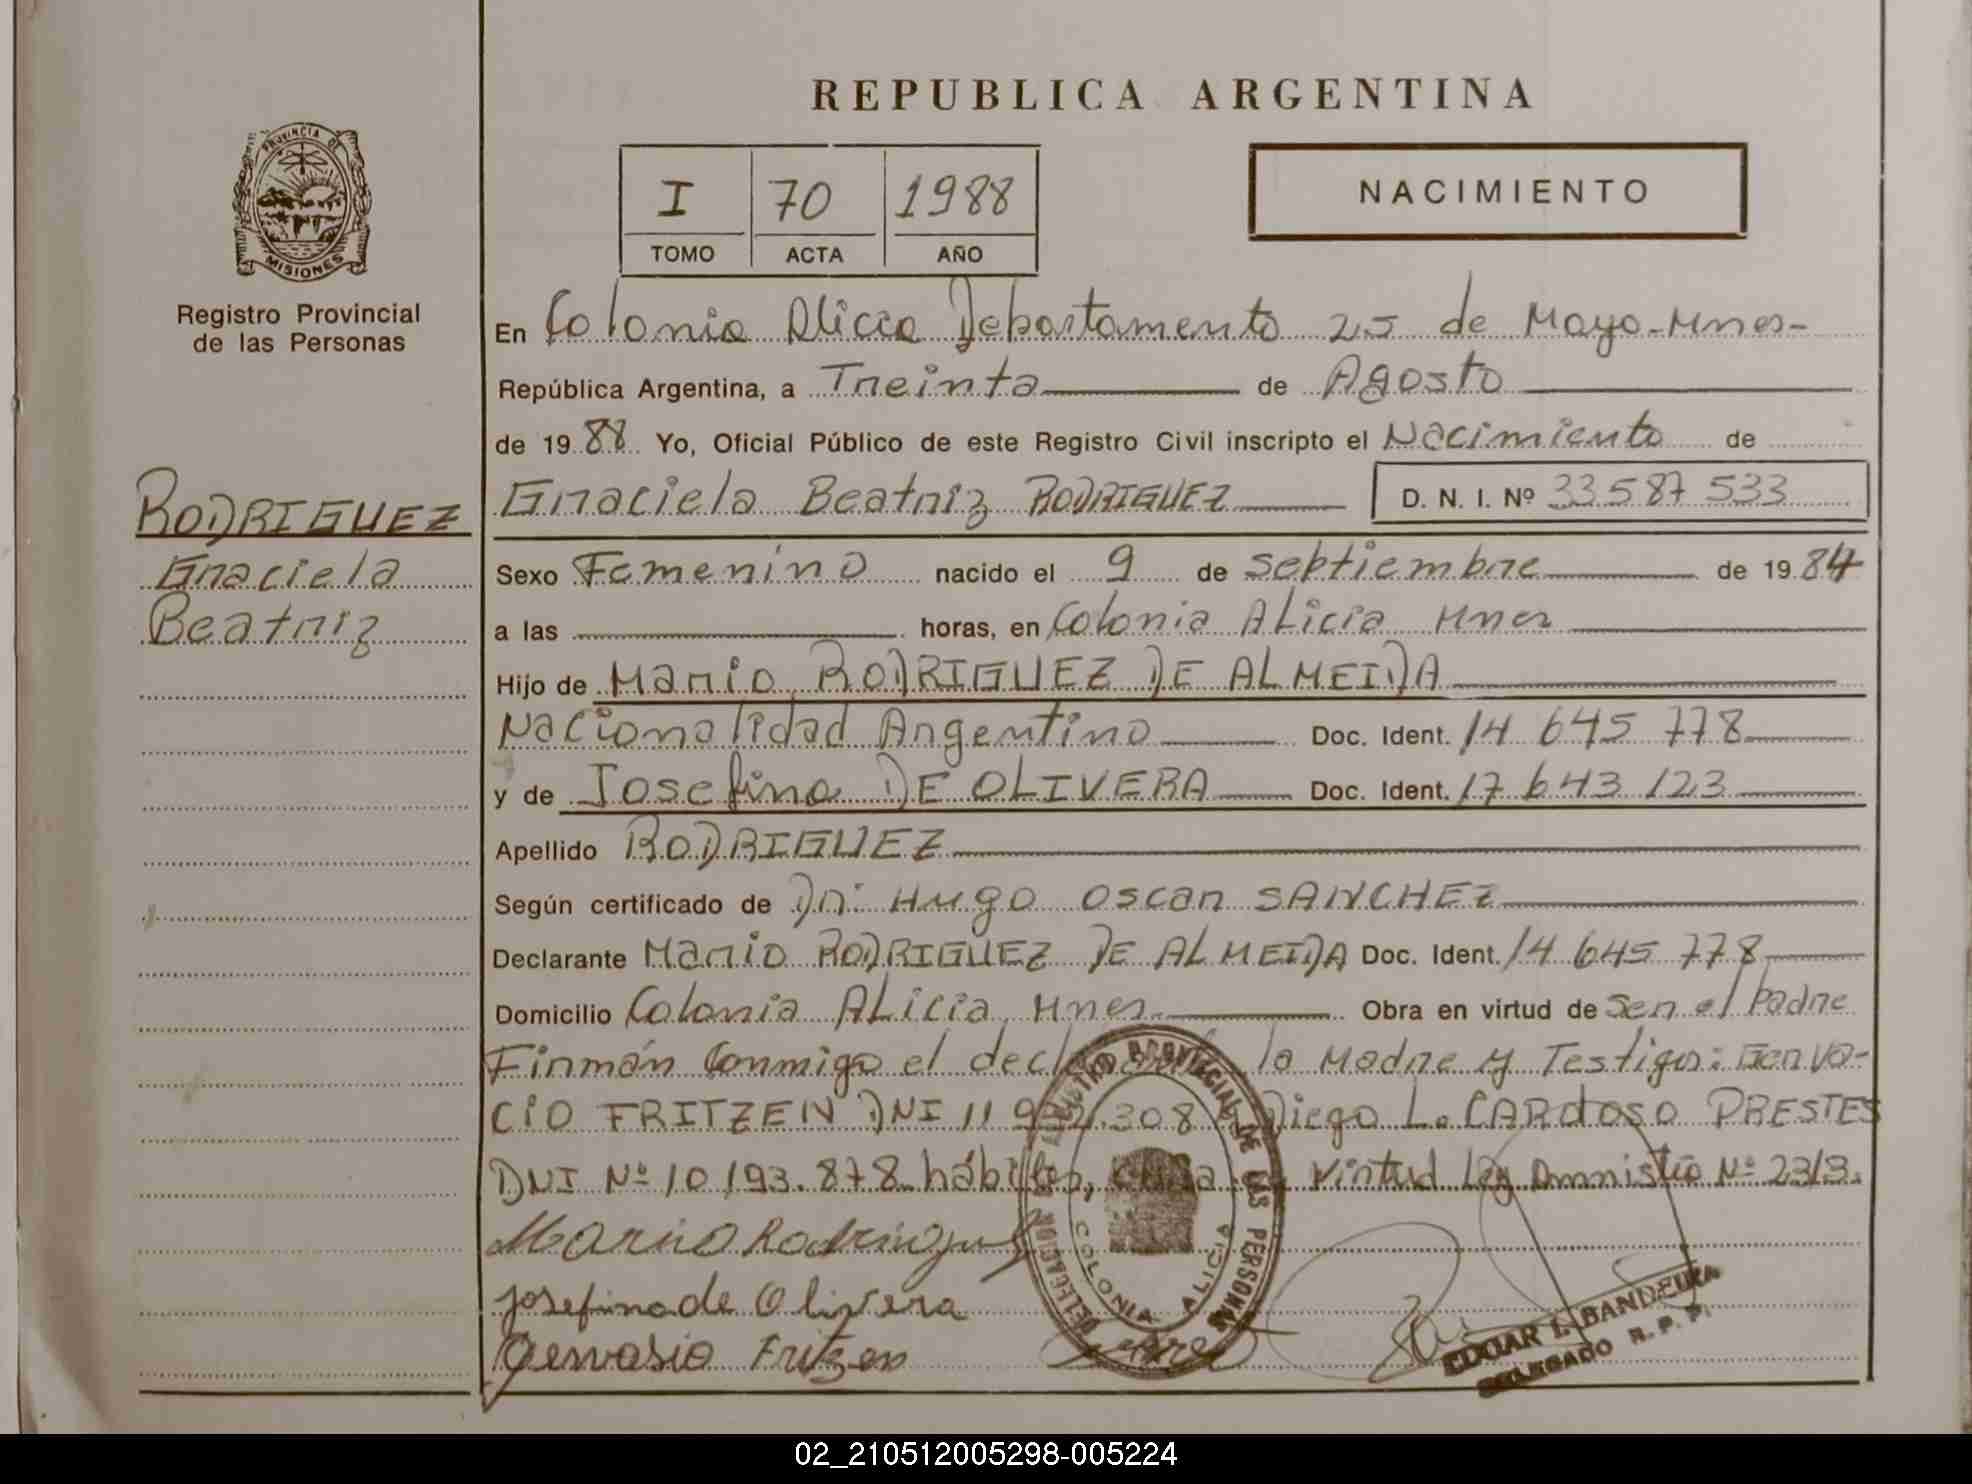 REPUBLICA ARGENTINA
PROVINCIA DE
MISIONES
Registro Provincial
de las Personas
I 70 1988
TOMO ACTA AÑO
NACIMIENTO
En Colonia Alicia Departamento 25 de Mayo-Mnes-
República Argentina, a Treinta de Agosto
de 1988 Yo, Oficial Público de este Registro Civil inscripto el Nacimiento de
Graciela Beatriz RODRIGUEZ D. N. I. Nº 33587533
RODRIGUEZ
Graciela
Beatriz
Sexo Femenino nacido el 9 de Septiembre de 1984
a las horas, en Colonia Alicia Mnes
Hijo de Mario RODRIGUEZ DE ALMEIDA
Nacionalidad Argentino Doc. Ident. 14 645 778
y de Josefina DE OLIVERA Doc. Ident. 17 643 123
Apellido RODRIGUEZ
Según certificado de Dr: Hugo Oscar SANCHEZ
Declarante Mario RODRIGUEZ DE ALMEIDA Doc. Ident. 14 645 778
Domicilio Colonia Alicia, Mnes. Obra en virtud de Ser el Padre
Firmán Conmigo el la Madre y Testigos: Gerva-
cio FRITZEN DNI 11 308 Diego L. CARDOSO PRESTES
DNI Nº 10 193.878 hábiles, virtud Ley Amnistia Nº 2313.
Mario Rodriguez
Josefina de Olivera
Gervasio Fritzen
REGISTRO PROVINCIAL DE LAS PERSONAS
DELEGACION
COLONIA ALICIA
EDGAR L. BANDEIRA
DELEGADO R. P. P.
02_210512005298-005224